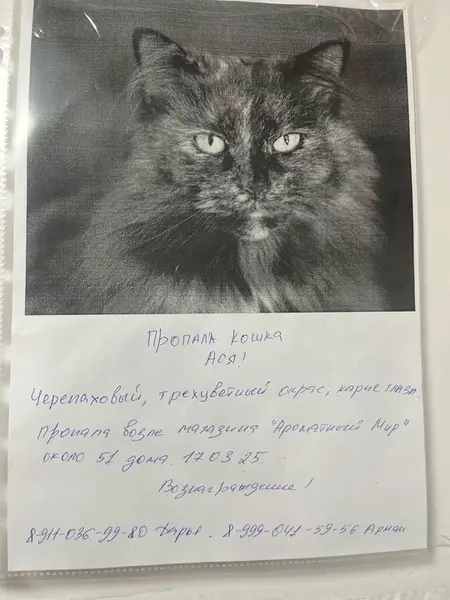 Пропала кошка
Ася!
Черепаховый, трехцветный окрас, карые глаза.
Пропала возле магазина "Ароматный Мир"
около 51 дома. 17.03.25.
Вознаграждение!
8-911-036-99-80 Дарья. 8-999-041-59-56 Арман